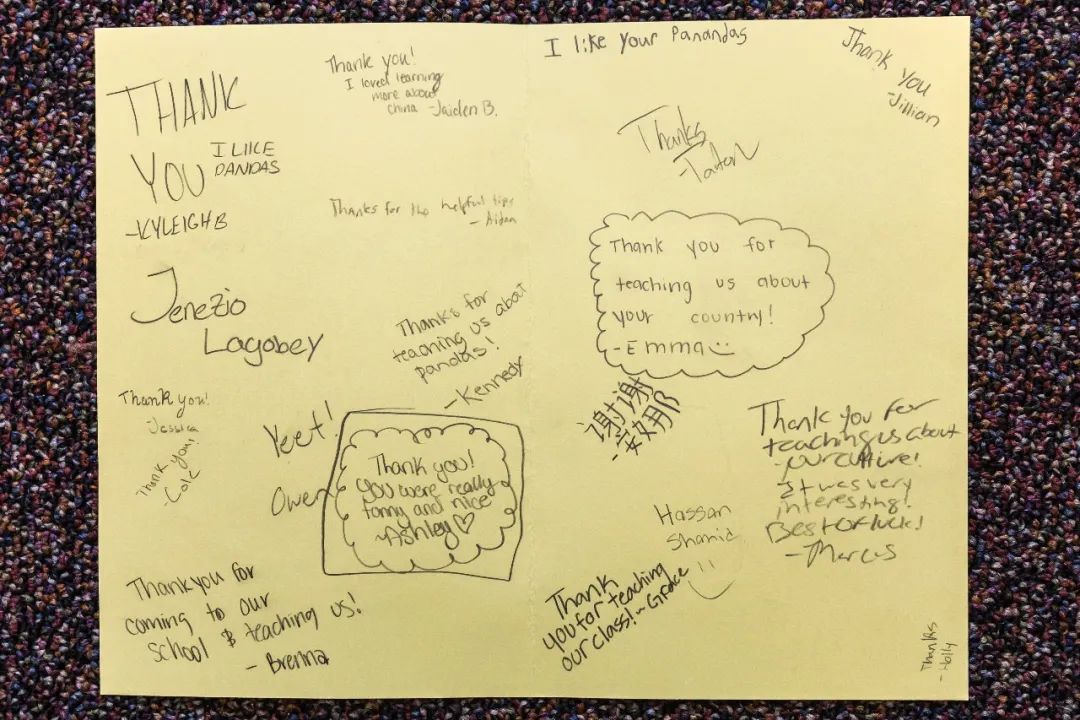 THANK
YOU
I LIIKE
PANDAS
-KYLEIGH B
Thank you!
I loved learning
more about
China -Jaiden B.
Thanks for the helpful tips
- Aidan
Jenezio
Lagobey
Thanks for
teaching us about
pandas!
-Kennedy
Thank you!
Jessica
Thank you!
- Cole
Yeet!
Owen
Thank you!
you were really
fanny and nice
~Ashley♡
Thank you for
coming to our
school & teaching us!
- Brenna
I like Your Panandas
Thank you
-Jillian
Thanks
Thank you for
teaching us about
your country!
-Emma
谢谢
-安娜
Thank you for
teaching us about
your culture!
It was very
interesting!
Best of luck!
-Marcus
Hassan
Thank
you for teaching
our class! ~Grace
Thanks
-Holly